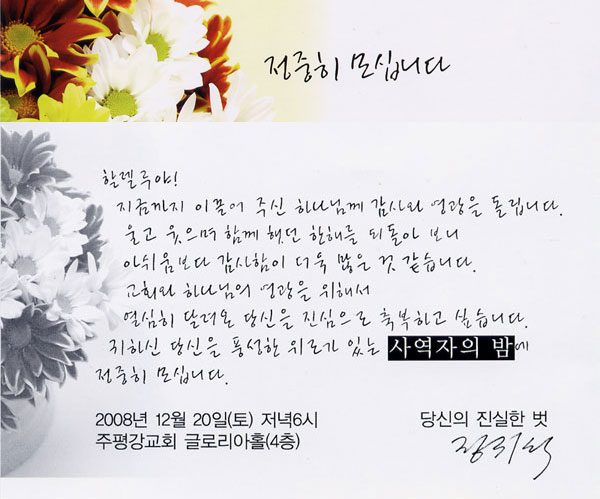 정중히 모십니다
할렐루야!
지금까지 이끌어 주신 하나님께 감사와 영광을 돌립니다.
울고 웃으며 함께 했던 한해를 되돌아 보니
아쉬움보다 감사함이 더욱 많은 것 같습니다.
교회와 하나님의 영광을 위해서
열심히 달려온 당신을 진심으로 축복하고 싶습니다.
귀하신 당신을 풍성한 위로가 있는 사역자의 밤에
정중히 모십니다.
2008년 12월 20일(토) 저녁6시
주평강교회 글로리아홀(4층)
당신의 진실한 벗